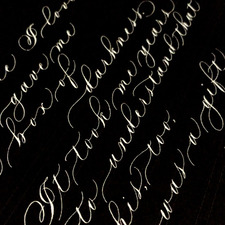 e I love
gave me
box of
darkness
It took me years
to understand that
his, too,
was a gift